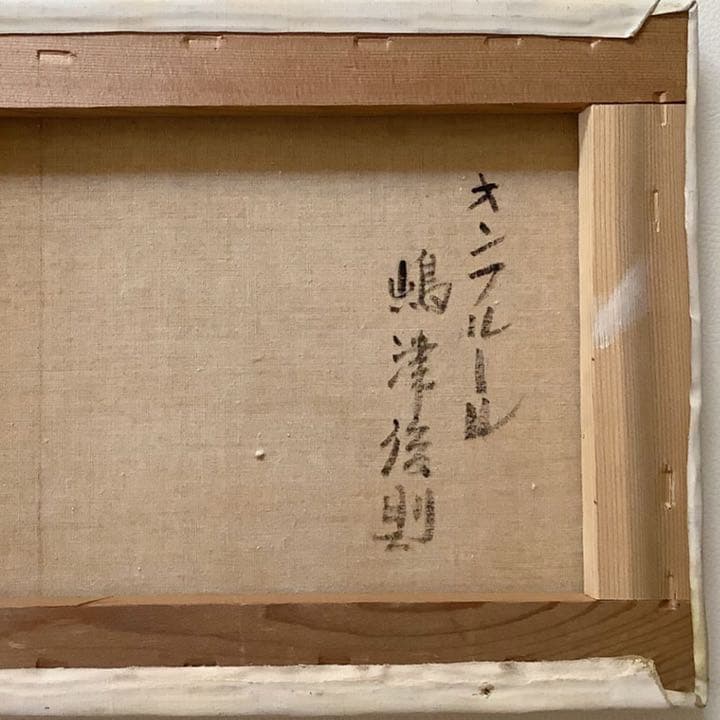 オンフルール
嶋津俊則